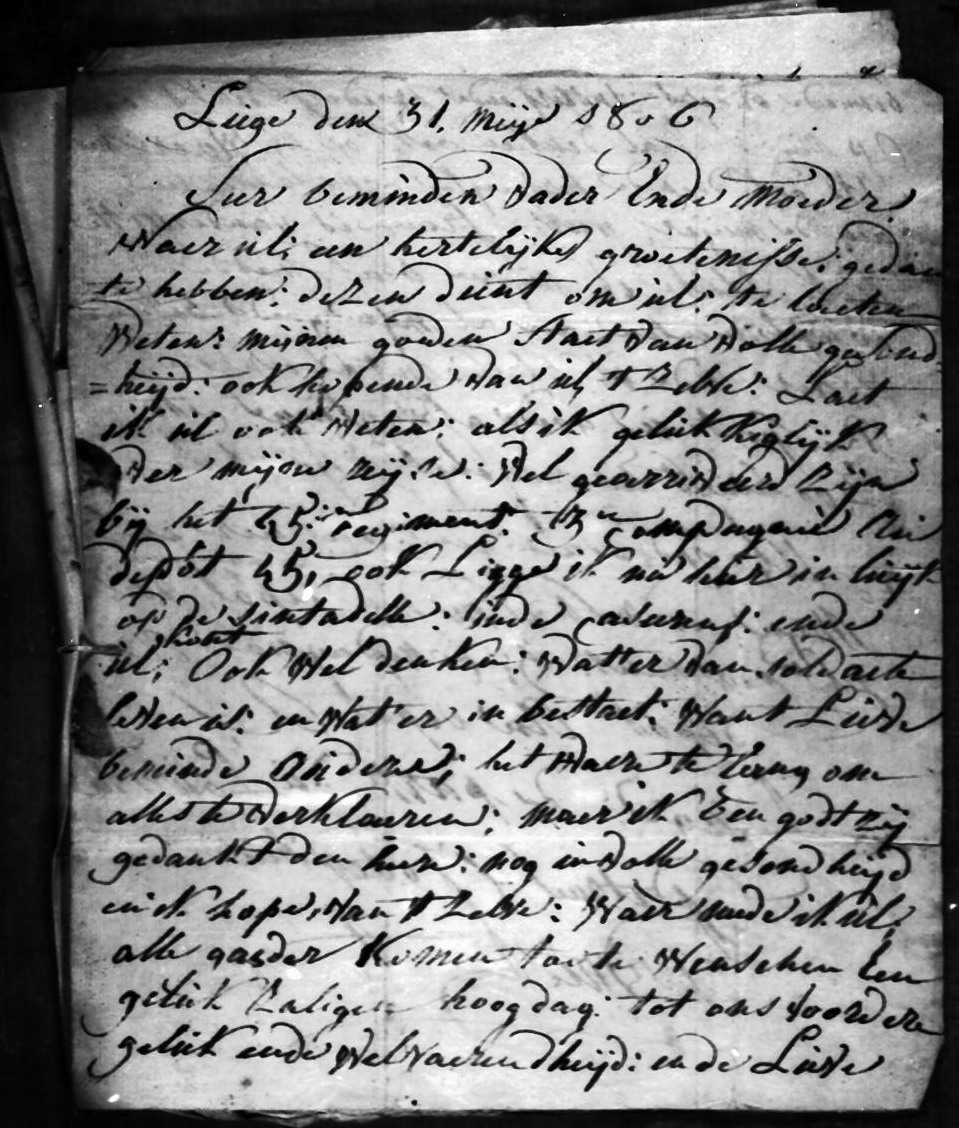 Luige den 31. meije 1806
Seer beminden vader Ende moeder
Naer ul: een hertelijke groetenisse: gedaen
te hebben: dezen dient om ul: te laeten
Weten: mijnen goeden staet van volle gesond
=heijd: ook hopende van ul 't zelve: Laet
ik ul ook Weten: als ik gelukkiglijk
mijn reijse: Wel gearriveerd zijn
bij het regiment: 3e Compagnie
depot ook Ligge ik nu hier in luijk
op de sintadelle: inde caserns: ende
kont
ul: Ook Wel denken: Watter van soldaete
leven is: en Wat er in bestaet: Want Lieve
beminde ouders; het Waere te lang om
alles te verklaeren; maer ik ben godt zij
gedankt den heere: nog in volle gesondheijd
en ik hope, van 't zelve: Waer mede ik ul,
alle gaeder Komen toe te Wenschen Een
geluk zaligen hoogdag: tot ons voordere
geluk ende Welvaerendheijd: ende Lieve